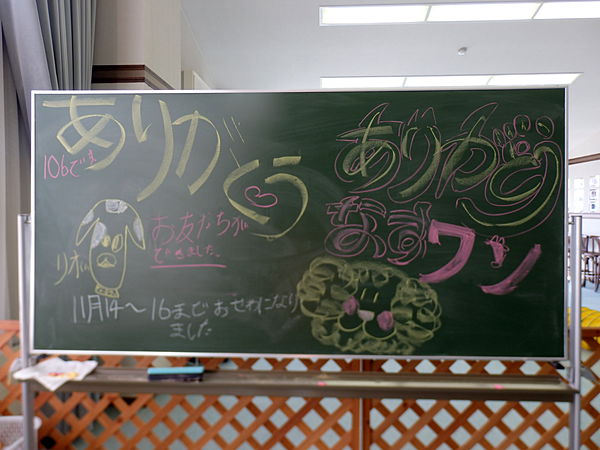 ありがとう
106でま
お友だちが
できました。
リオ
11月14〜16までおせわになり
ました
ありがとう
ワン